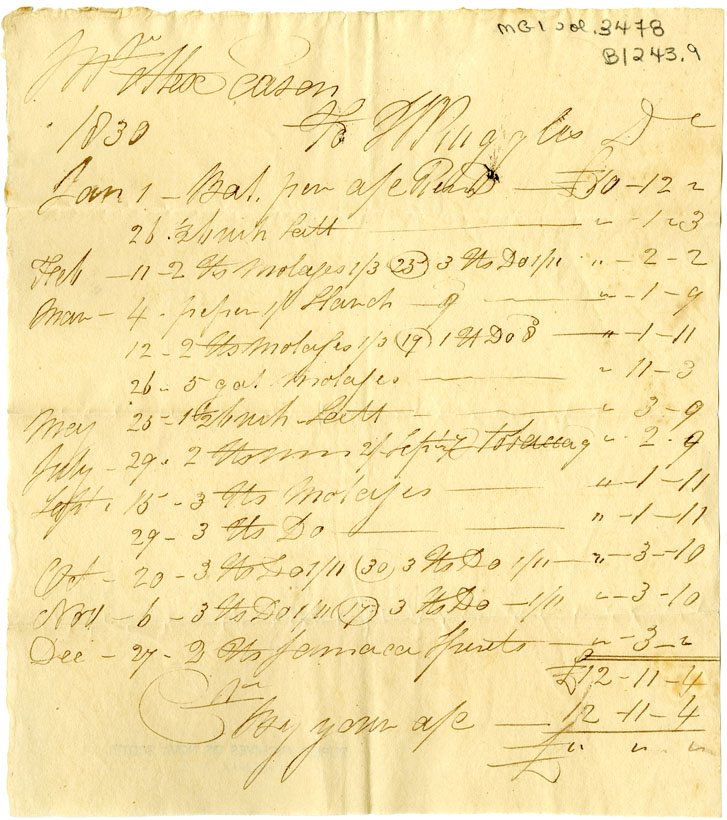 MG1 vol. 3478
B1243.9
Mr Alex Eason
1830 To T Ruggles Dr
Jan 1 - Bal. per a/c Rend — £10-12 "
26 ½ bush Salt — " -1-3
Feb - 11 - 2 qts Molasses 1/3 (23) 3 qts Do 1/11 " - 2 - 2
Mar - 4 - paper 1/ Starch 9 — " -1-9
12 - 2 qts Molasses 1/3 (19) 1 qt Do 8 — " -1-11
26 - 5 gal. Molasses — " 11-3
May 25 - 1½ bush Salt — " 3-9
July - 29 - 2 qts rum 2/ Tobacco 9 " 2-9
Sept. 15 - 3 qts Molasses — " -1-11
29 - 3 qts Do — " -1-11
Oct - 20 - 3 qts Do 1/11 (30) 3 qts Do 1/11 — " -3-10
Nov - 6 - 3 qts Do 1/11 (17) 3 qts Do - 1/11 " -3-10
Dec - 27 - 2 qts Jamaca Spirets — " -3- "
£12-11-4
Cr
By your a/c — 12-11-4
£ " " "